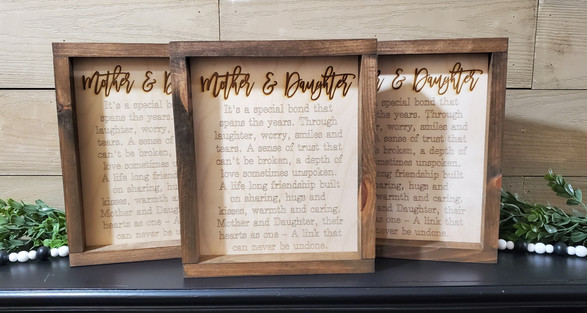 Mother & D
It's a special b
spans the years.
laughter, worry,
tears. A sense o
can't be broken,
love sometimes
A life long frien
on sharing, h
kisses, warmth a
Mother and Dau
hearts as one -
can never be u
Mother & Daughter
It's a special bond that
spans the years. Through
laughter, worry, smiles and
tears. A sense of trust that
can't be broken, a depth of
love sometimes unspoken.
A life long friendship built
on sharing, hugs and
kisses, warmth and caring.
Mother and Daughter, their
hearts as one - A link that
can never be undone.
& Daughter
special bond that
e years. Through
worry, smiles and
sense of trust that
broken, a depth of
metimes unspoken.
ng friendship built
aring, hugs and
armth and caring.
nd Daughter, their
s one - A link that
never be undone.